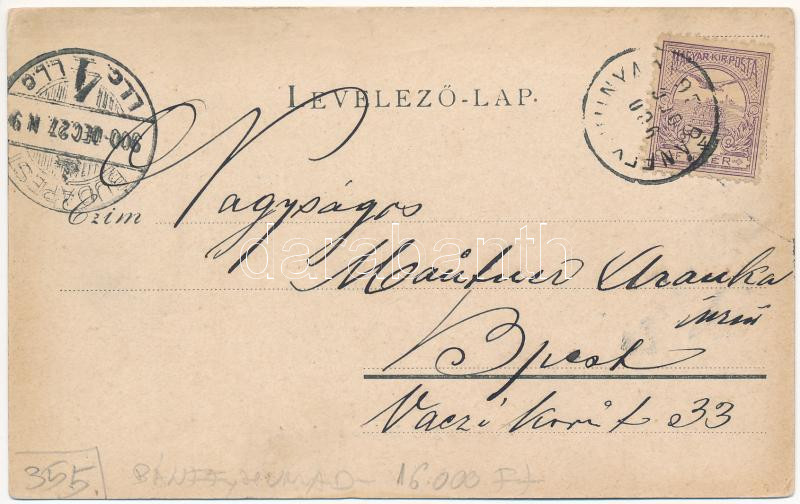 LEVELEZŐ-LAP.
MAGYAR·KIR·POSTA
BUDAPEST
900 DEC. 27. N 9
4
Czim
Nagyságos
Mautner Aranka
Bpest
Váczi körút 33
darabanth
355.
BÁNFFYHUNYAD
16.000 Ft